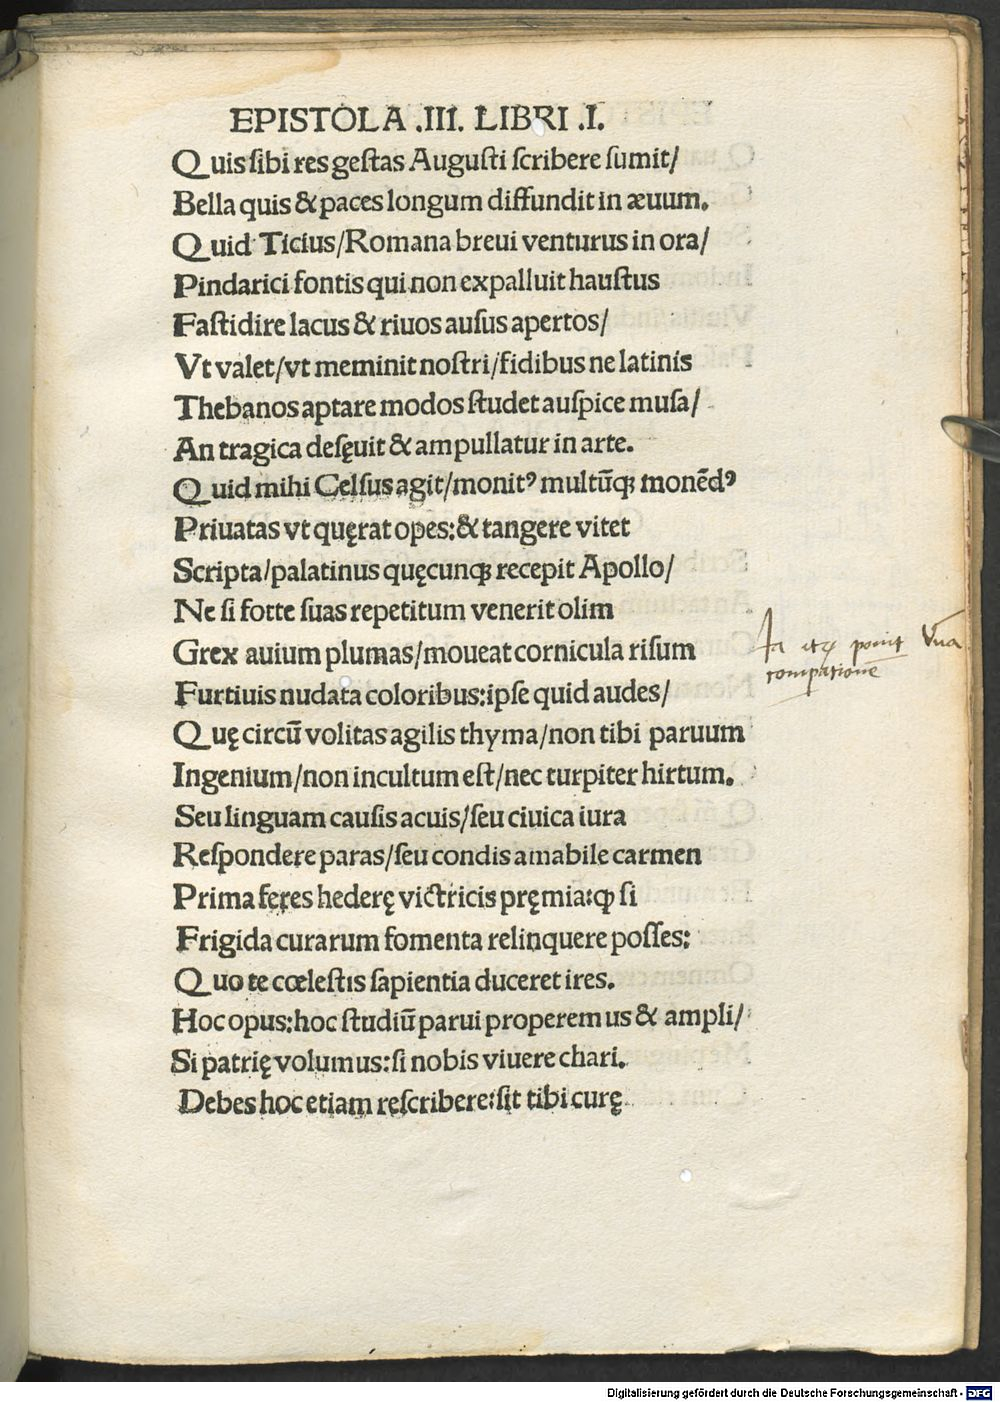 EPISTOLA .III. LIBRI .I.
Quis sibi res gestas Augusti scribere sumit/
Bella quis & paces longum diffundit in æuum.
Quid Ticius/Romana breui venturus in ora/
Pindarici fontis qui non expalluit haustus
Fastidire lacus & riuos ausus apertos/
Vt valet/vt meminit nostri/fidibus ne latinis
Thebanos aptare modos studet auspice musa/
An tragica desęuit & ampullatur in arte.
Quid mihi Celsus agit/monitꝰ multūqꝫ monēdꝰ
Priuatas vt quęrat opes:& tangere vitet
Scripta/palatinus quęcunqꝫ recepit Apollo/
Ne si forte suas repetitum venerit olim
Grex auium plumas/moueat cornicula risum
Furtiuis nudata coloribus:ipse quid audes/
Quę circū volitas agilis thyma/non tibi paruum
Ingenium/non incultum est/nec turpiter hirtum.
Seu linguam causis acuis/seu ciuica iura
Respondere paras/seu condis amabile carmen
Prima feres hederę victricis pręmia:qꝫ si
Frigida curarum fomenta relinquere posses:
Quo te cœlestis sapientia duceret ires.
Hoc opus:hoc studiū parui properemus & ampli/
Si patrię volumus:si nobis viuere chari.
Debes hoc etiam rescribere:sit tibi curę
ponit
Digitalisierung gefördert durch die Deutsche Forschungsgemeinschaft - DFG